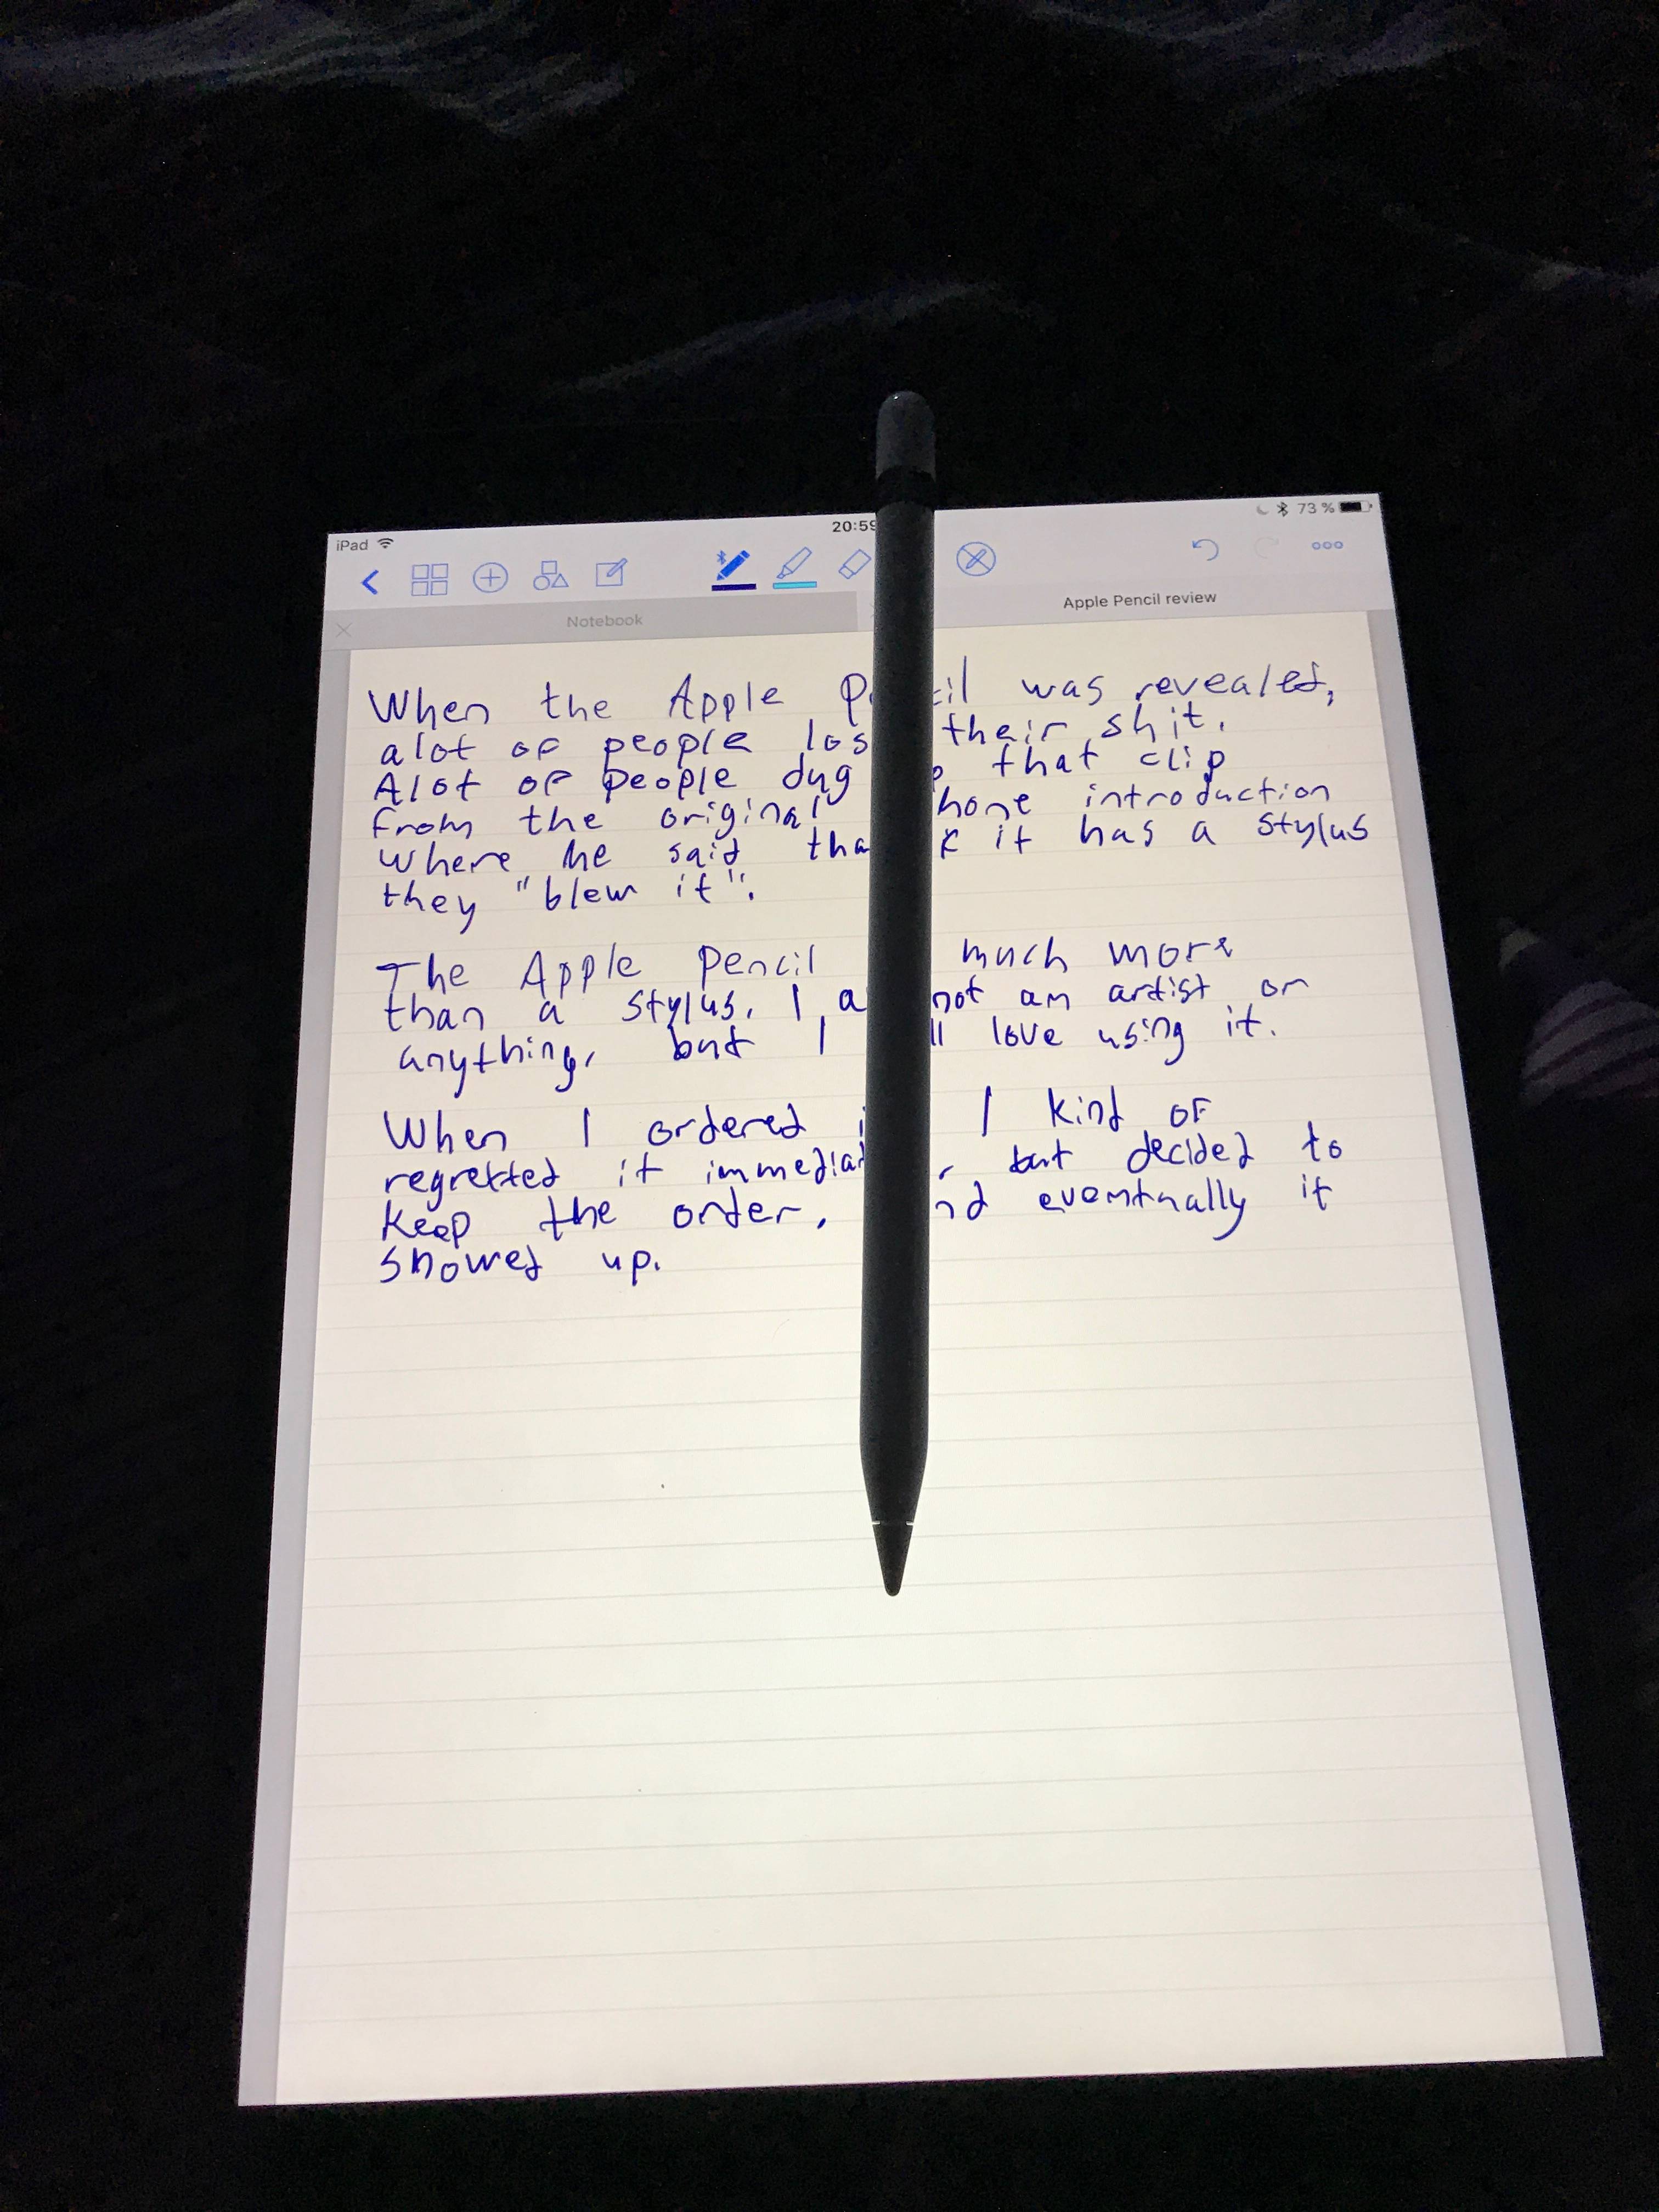 iPad 20:59 73 %
Notebook Apple Pencil review
When the Apple was revealed,
alot of people their shit.
Alot of people dug that clip
from the original introduction
where he said it has a stylus
they "blew it".
The Apple Pencil much more
than a stylus. I not an artist or
anything, but I love using it.
When I ordered I kind of
regretted it but decided to
keep the order, eventually it
showed up.